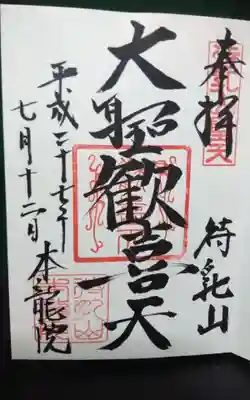 奉拝
待乳山
大聖歓喜天
平成二十七年
七月十二日
本龍院